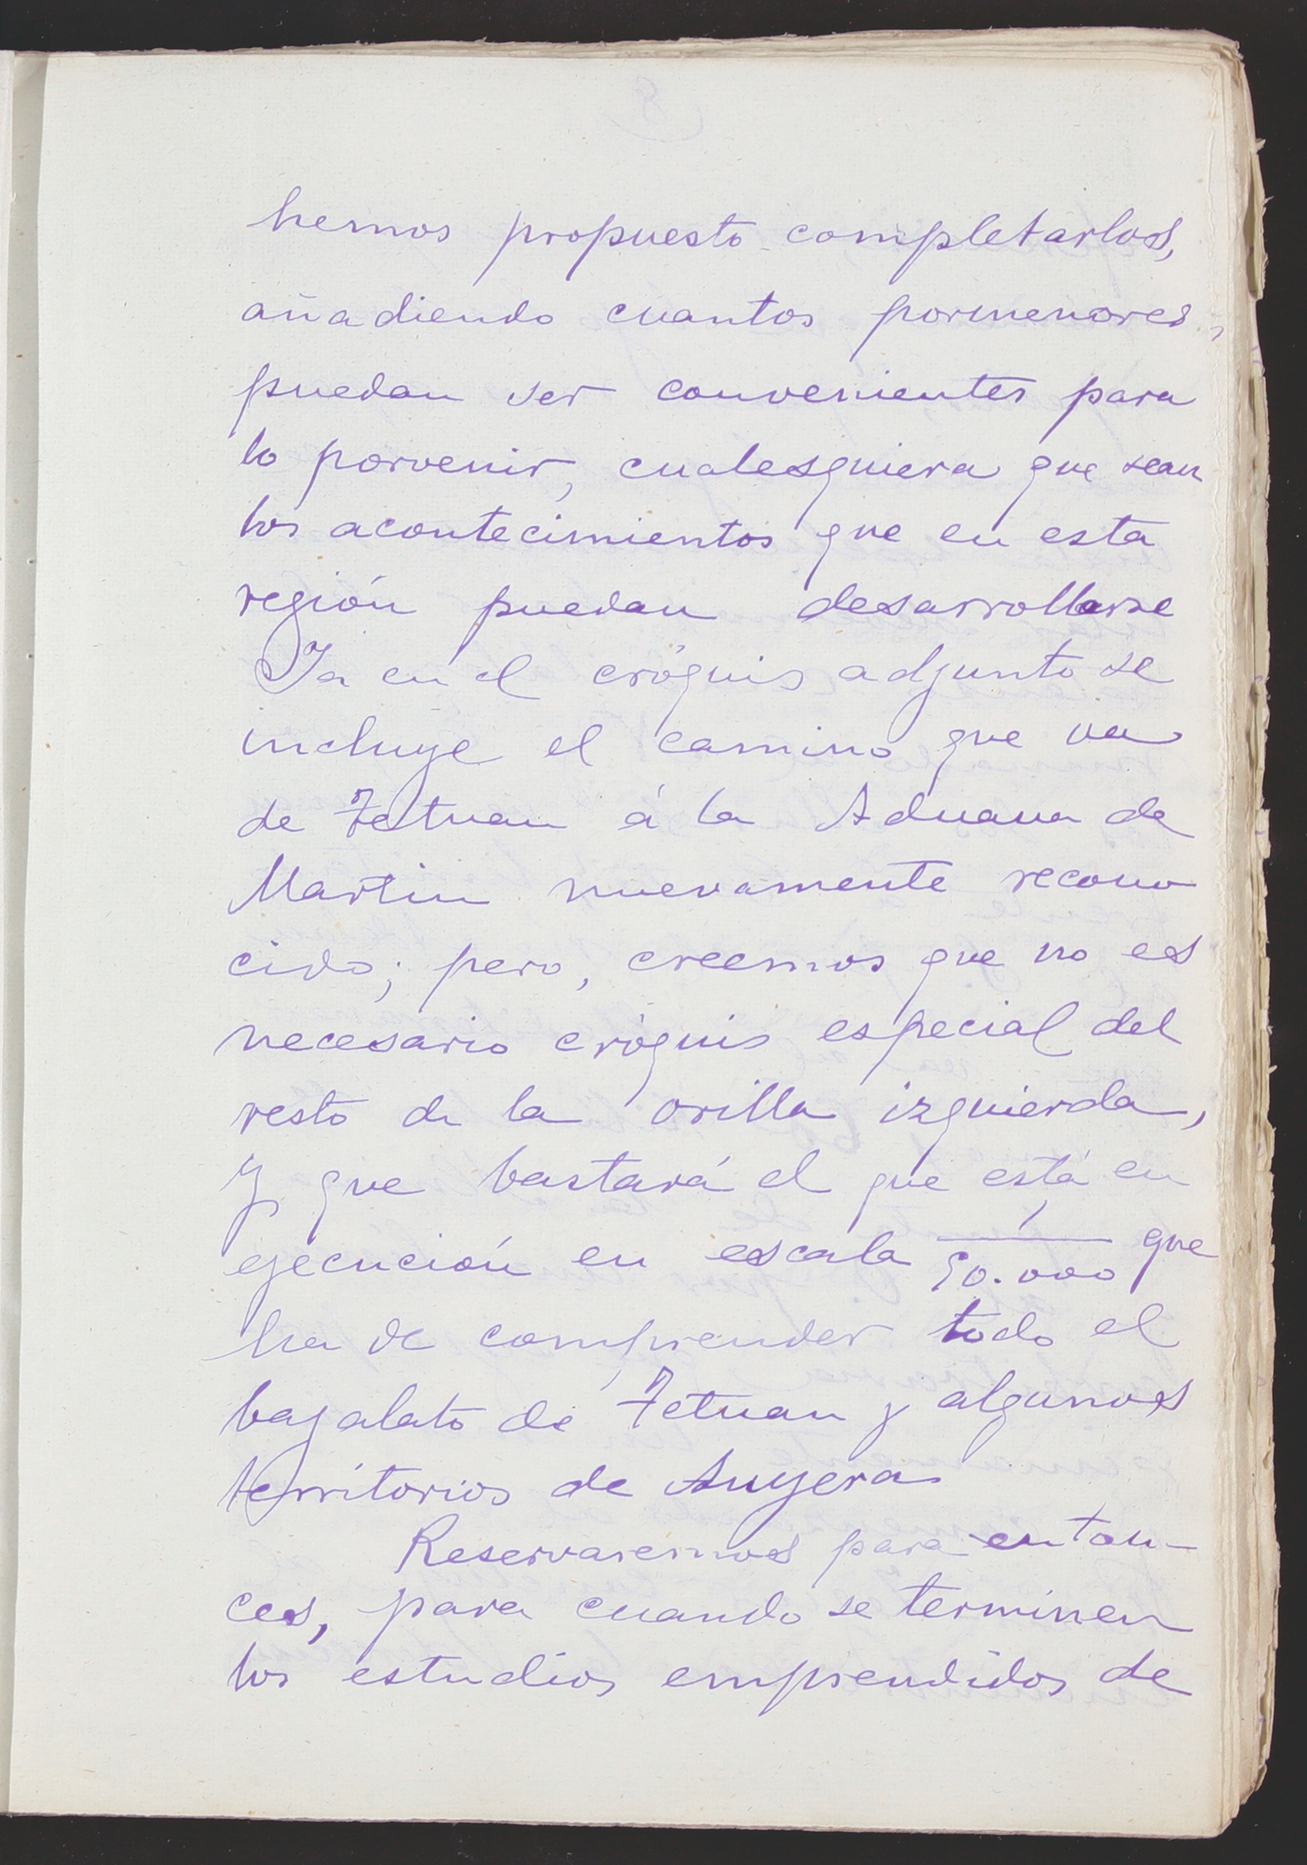 hemos propuesto completarlos,
añadiendo cuantos pormenores,
puedan ser convenientes para
lo porvenir, cualesquiera que sean
los acontecimientos que en esta
región puedan desarrollarse
Ya en el cróquis adjunto se
incluye el camino que va
de Tetuan á la Aduana de
Martin nuevamente recono
cido; pero, creemos que no es
necesario cróquis especial del
resto de la orilla izquierda,
y que bastará el que está en
ejecución en escala 1/50.000 que
ha de comprender todo el
bajalato de Tetuan y algunos
territorios de Anyera
Reservaremos para enton-
ces, para cuando se terminen
los estudios emprendidos de